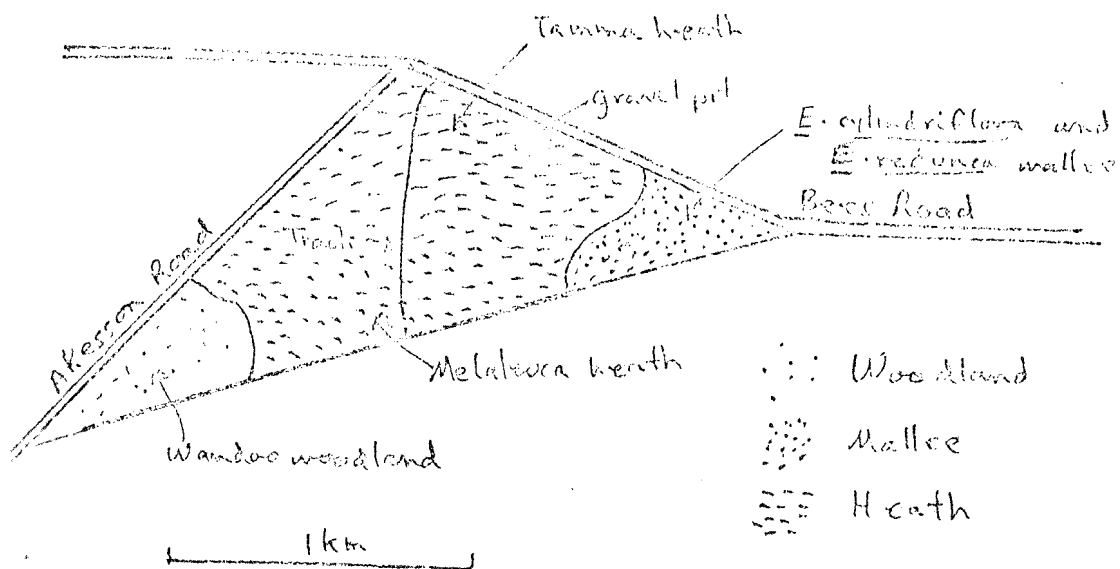 Tamma heath
gravel pit
E. cylindriflora and
E. redunca mallee
Bees Road
Track
Akesson Road
Melaleuca heath
Wandoo woodland
Woodland
Mallee
Heath
1 km